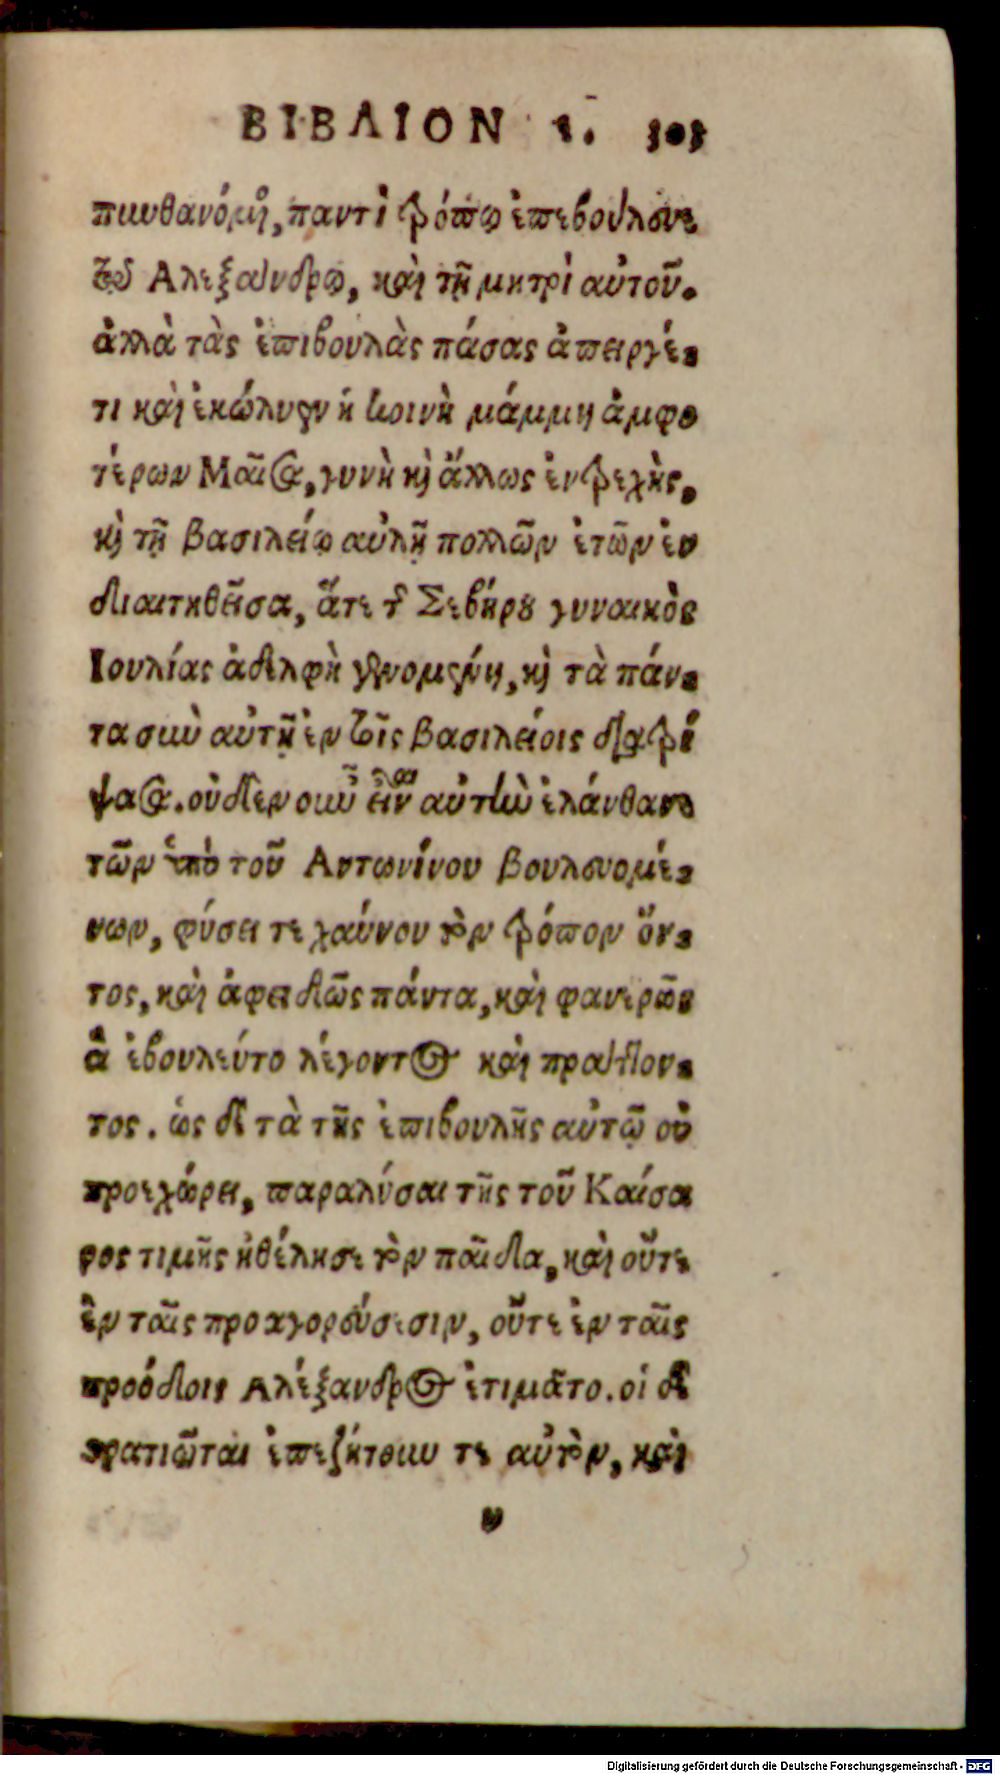 ΒΙΒΛΙΟΝ ε. 303
πυνθανόμενος, παντὶ τρόπῳ ἐπεβούλευε
τῷ Αλεξάνδρῳ, καὶ τῇ μητρὶ αὐτοῦ.
ἀλλὰ τὰς ἐπιβουλὰς πάσας ἀπειργέ-
τι καὶ ἐκώλυεν ἡ κοινὴ μάμμη ἀμφο
τέρων Μαῖσα, γυνὴ καὶ ἄλλως ἐντρεχὴς,
καὶ τῇ βασιλείῳ αὐλῇ πολλῶν ἐτῶν ἐν
διαιτηθεῖσα, ἅτε τοῦ Σεβήρου γυναικὸς
Ιουλίας ἀδελφὴ γενομένη, καὶ τὰ πάν-
τα σὺν αὐτῇ ἐν τοῖς βασιλείοις διατρί
ψασα. οὐδὲν οὖν αὐτὴν ἐλάνθανε
τῶν ὑπὸ τοῦ Αντωνίνου βουλευομέ-
νων, φύσει τε χαύνου τὸν τρόπον ὄν-
τος, καὶ ἀφειδῶς πάντα, καὶ φανερῶς
ἃ ἐβουλεύτο λέγοντος καὶ πράττον-
τος. ὡς δὲ τὰ τῆς ἐπιβουλῆς αὐτῷ οὐ
προεχώρει, παραλύσαι τῆς τοῦ Καίσα
ρος τιμῆς ἠθέλησε τὸν παῖδα, καὶ οὔτε
ἐν ταῖς προαγορεύσεσιν, οὔτε ἐν ταῖς
προόδοις Αλέξανδρος ἐτιμᾶτο. οἱ δὲ
στρατιῶται ἐπεζήτουν τε αὐτὸν, καὶ
υ
Digitalisierung gefördert durch die Deutsche Forschungsgemeinschaft - DFG